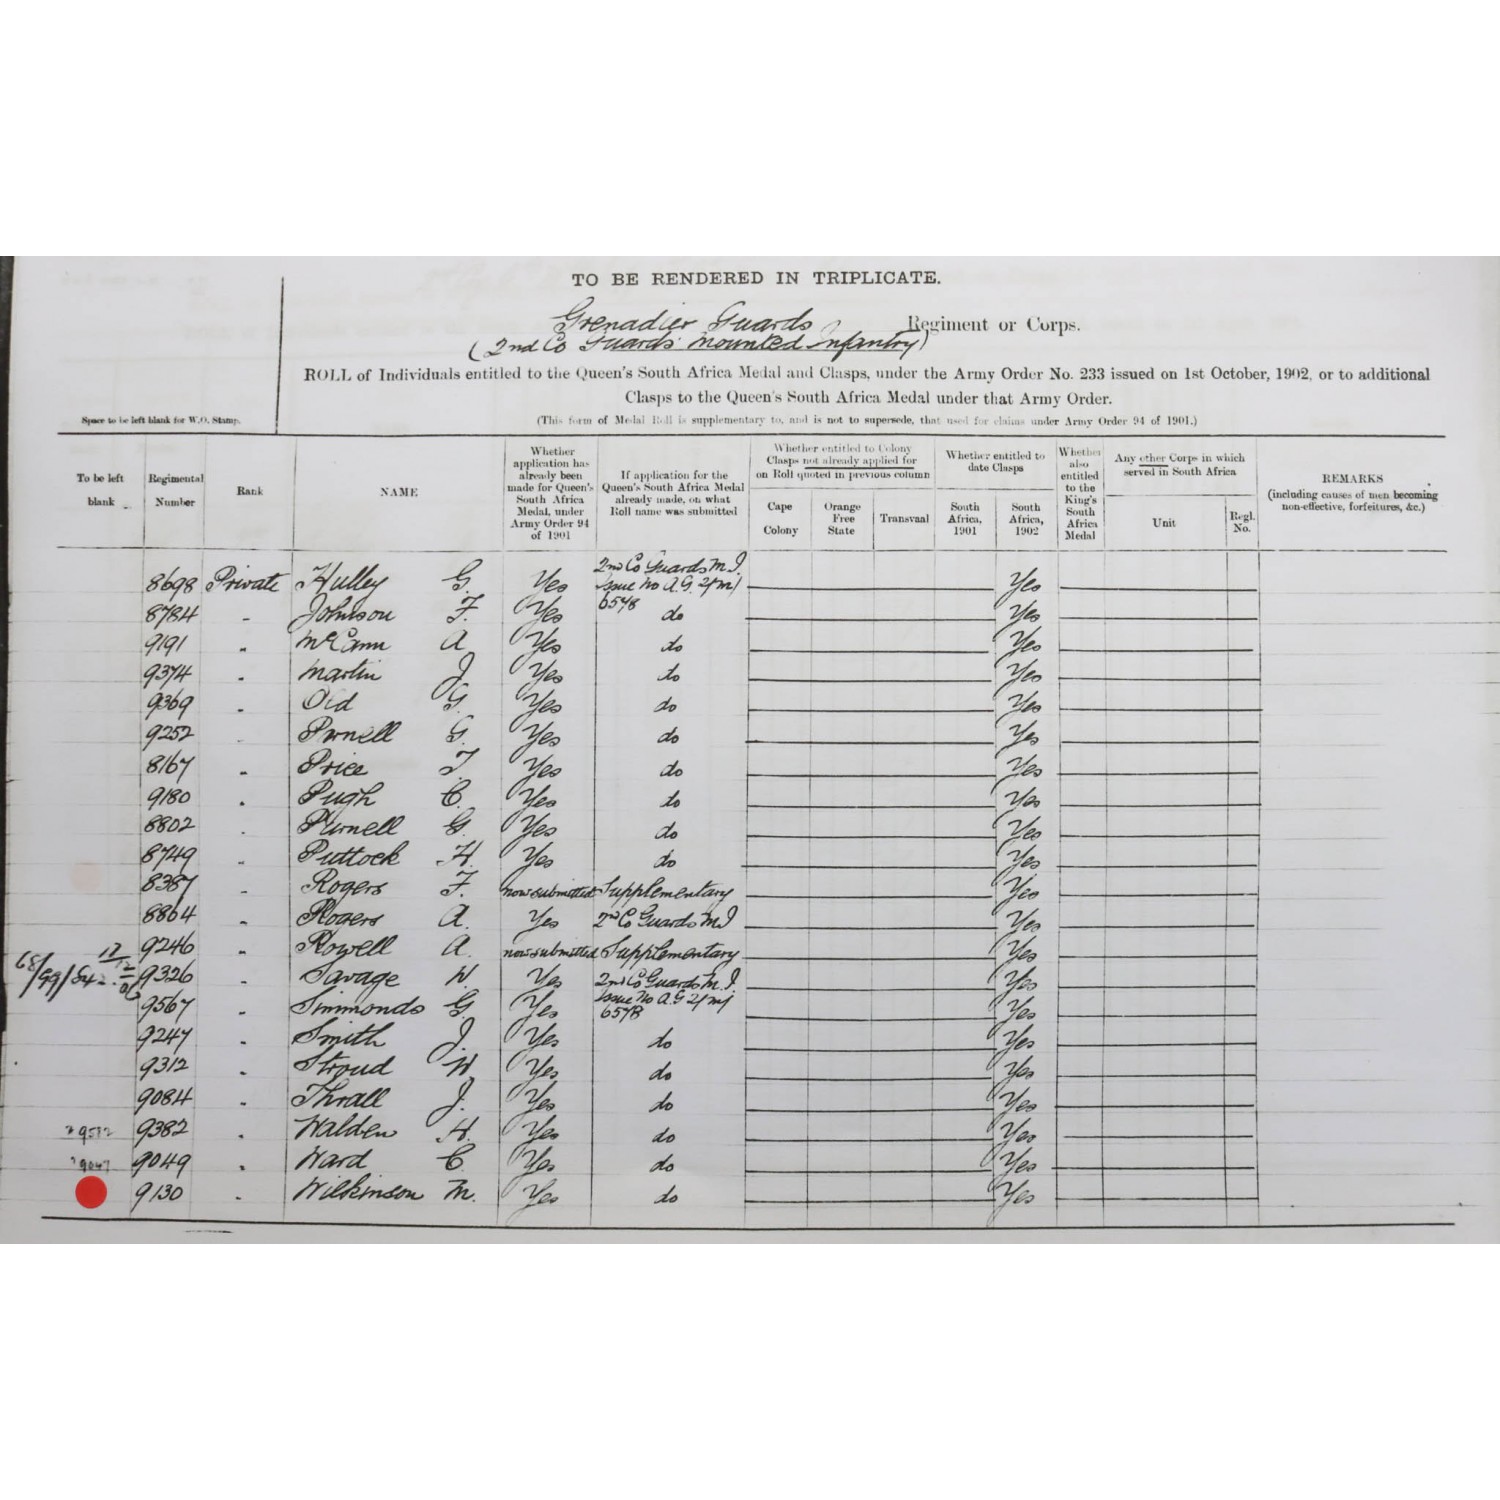 TO BE RENDERED IN TRIPLICATE.
Grenadier Guards Regiment or Corps.
(2nd Co Guards Mounted Infantry)
ROLL of Individuals entitled to the Queen's South Africa Medal and Clasps, under the Army Order No. 233 issued on 1st October, 1902, or to additional
Clasps to the Queen's South Africa Medal under that Army Order.
Space to be left blank for W.O. Stamp.
(This form of Medal Roll is supplementary to, and is not to supersede, that used for claims under Army Order 94 of 1901.)
To be left blank
Regimental Number
Rank
NAME
Whether application has already been made for Queen's South Africa Medal, under Army Order 94 of 1901
If application for the Queen's South Africa Medal already made, on what Roll name was submitted
Whether entitled to Colony Clasps not already applied for on Roll quoted in previous column
Cape Colony
Orange Free State
Transvaal
Whether entitled to date Clasps
South Africa, 1901
South Africa, 1902
Whether also entitled to the King's South Africa Medal
Any other Corps in which served in South Africa
Unit
Regl. No.
REMARKS
(including causes of men becoming non-effective, forfeitures, &c.)
8698 Private Hulley G. Yes 2nd Co Guards M.I. Issue No A.G. 2/MI 6578 Yes
8784 " Johnson F. Yes do Yes
9191 " McCann A Yes do Yes
9374 " Martin J Yes do Yes
9369 " Old G. Yes do Yes
9252 " Purnell G. Yes do Yes
8167 " Price T. Yes do Yes
9180 " Pugh C. Yes do Yes
8802 " Purnell G. Yes do Yes
8749 " Puttock H. Yes do Yes
8387 " Rogers F. now submitted Supplementary Yes
8864 " Rogers A. Yes 2nd Co Guards M.I Yes
9246 " Rowell A. now submitted Supplementary Yes
9326 " Savage W. Yes 2nd Co Guards M.I. Yes
9567 " Simmonds G. Yes Issue No A.G 2/MI 6578 Yes
9247 " Smith J. Yes do Yes
9312 " Stroud W Yes do Yes
9084 " Thrall J. Yes do Yes
9382 " Walden H. Yes do Yes
9049 " Ward C. Yes do Yes
9130 " Wilkinson M. Yes do Yes